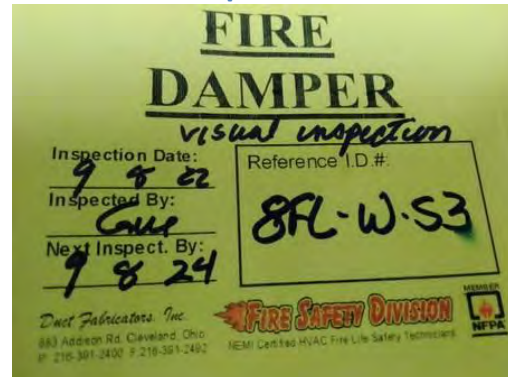 FIRE
DAMPER
visual inspection
Inspection Date:
9 8 22
Inspected By:
Next Inspect. By:
9 8 24
Reference I.D.#:
8FL-W-S3
Duct Fabricators, Inc.
883 Addison Rd. Cleveland, Ohio
P: 216-391-2400 F: 216-391-2492
FIRE SAFETY DIVISION
NEMI Certified HVAC Fire Life Safety Technicians
MEMBER
NFPA